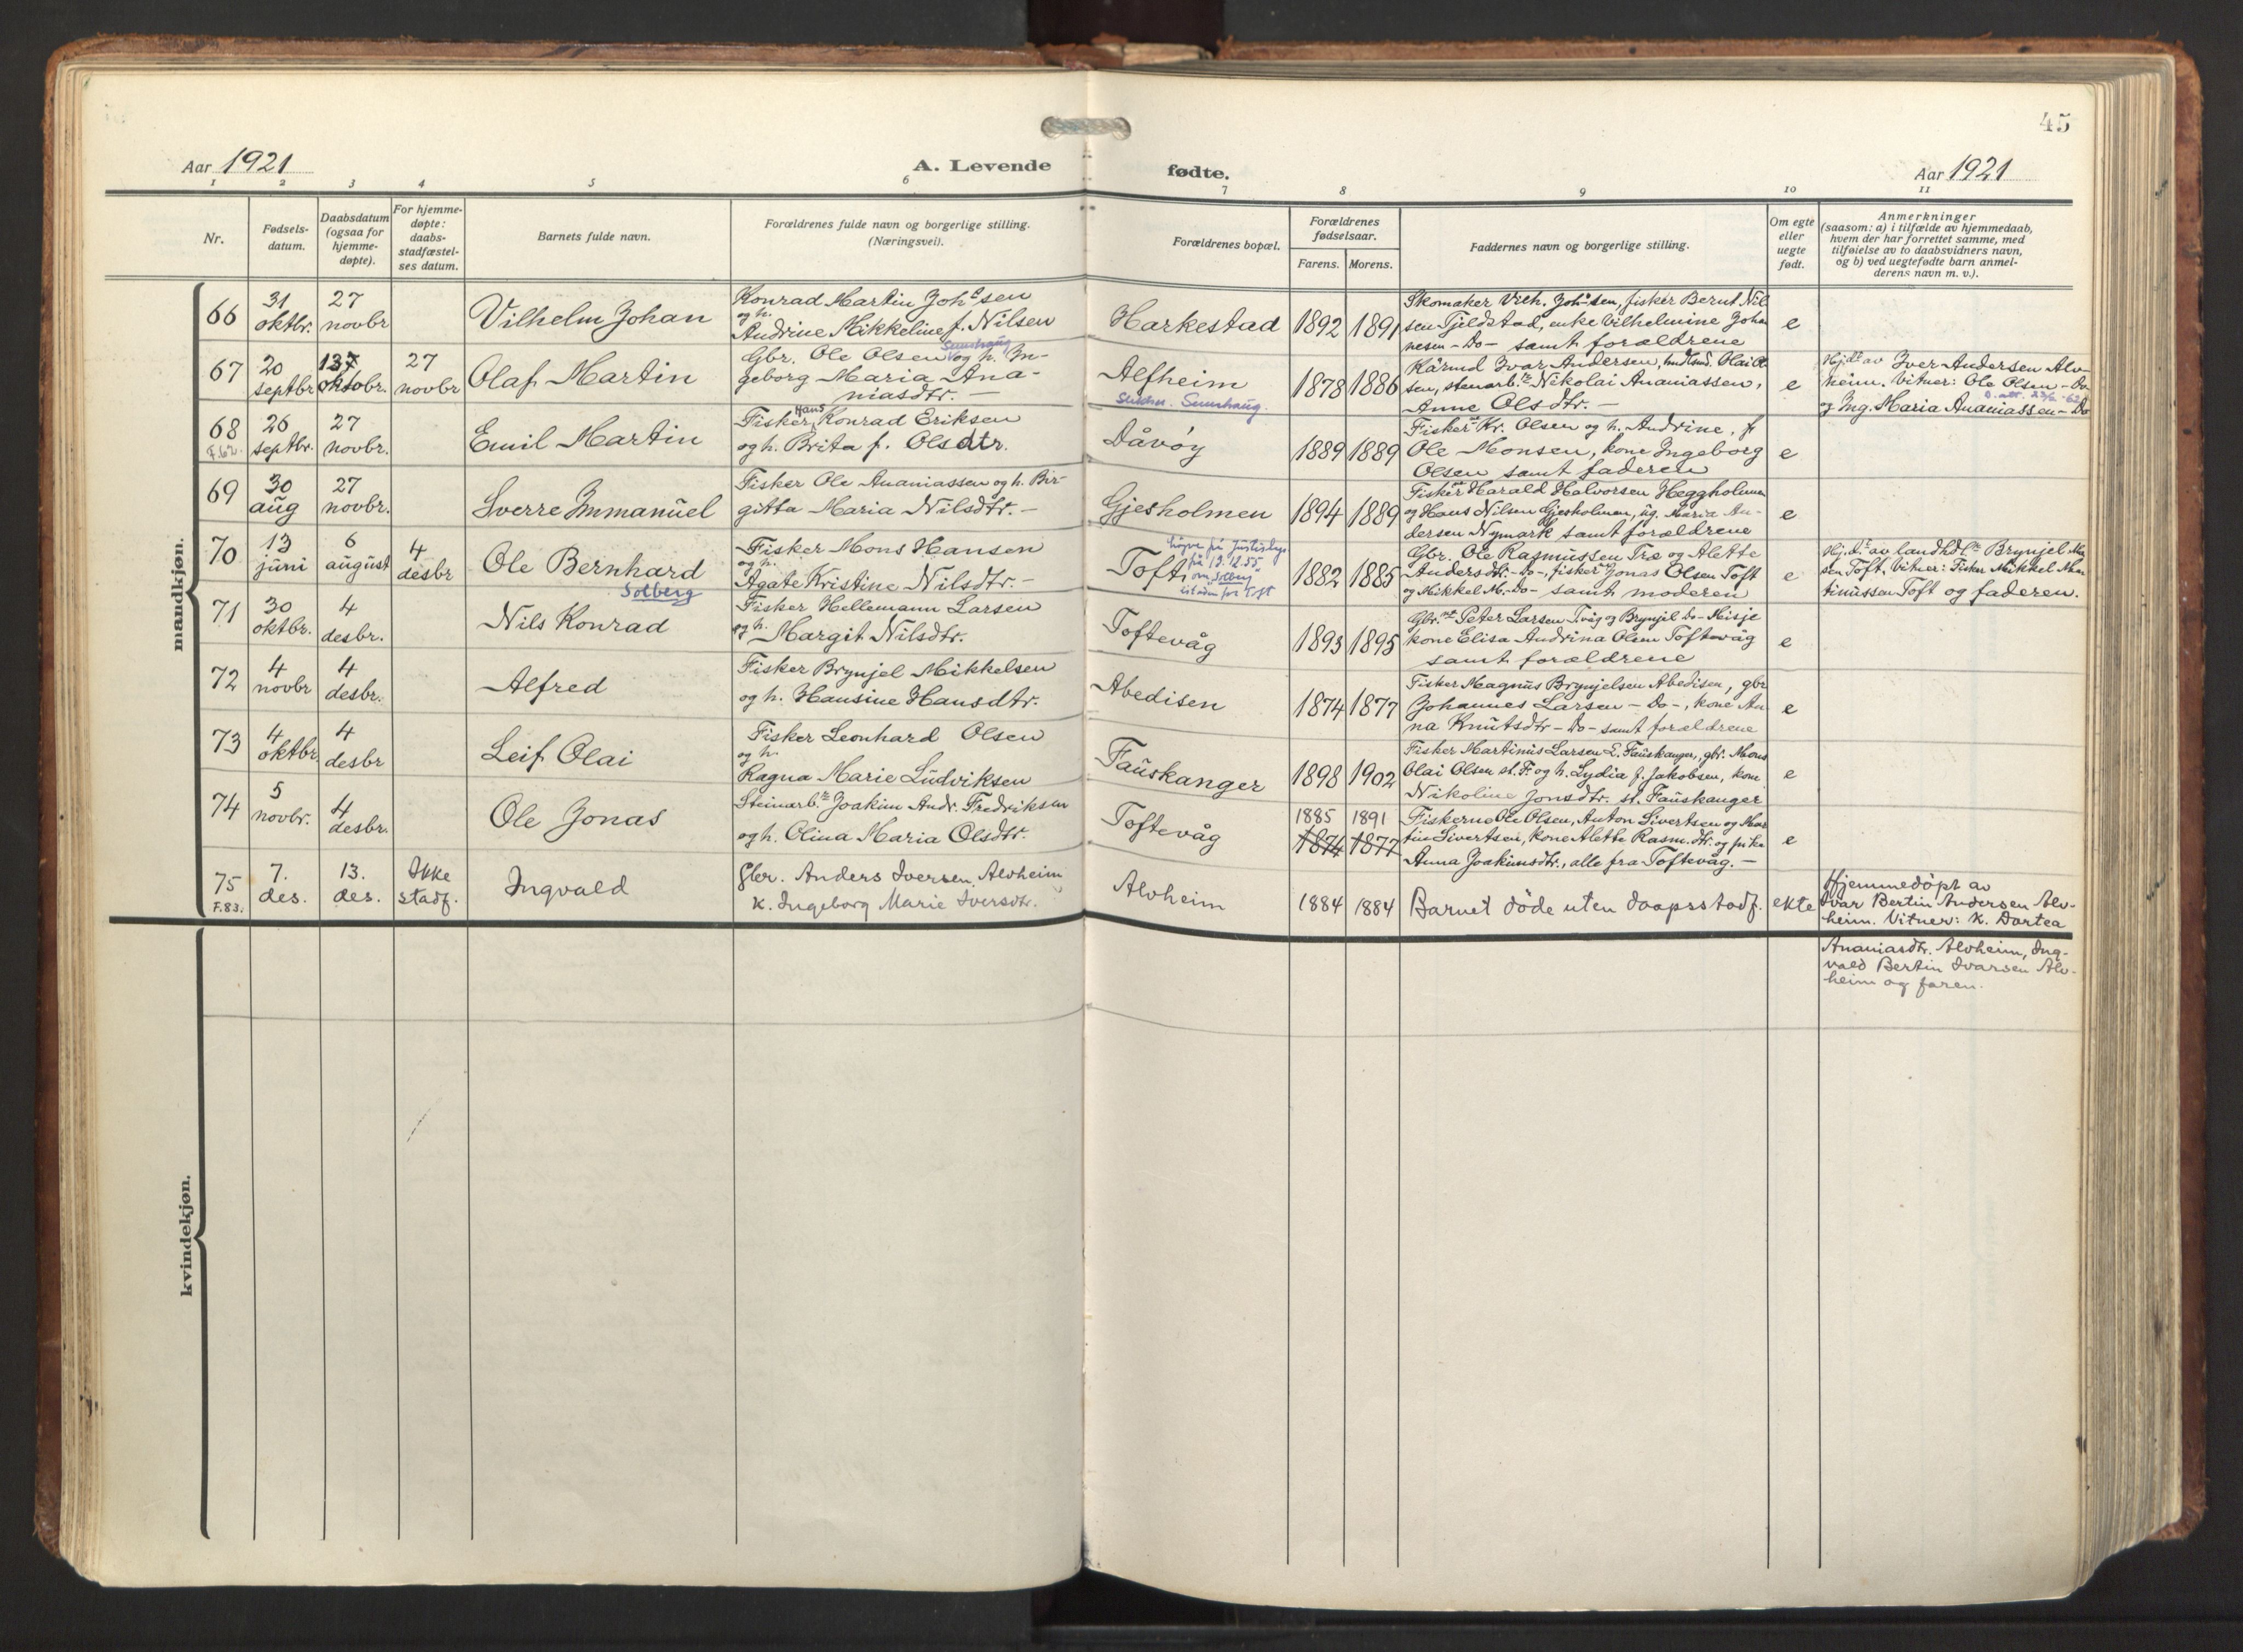 45
Aar 1921
A. Levende fødte.
Aar 1921
1 2 3 4 5 6 7 8 9 10 11
Nr.
Fødsels-
datum.
Daabsdatum
(ogsaa for
hjemme-
døpte).
For hjemme-
døpte:
daabs-
stadfæstel-
ses datum.
Barnets fulde navn.
Forældrenes fulde navn og borgerlige stilling.
(Næringsvei).
Forældrenes bopæl.
Forældrenes
fødselsaar.
Farens. Morens.
Faddernes navn og borgerlige stilling.
Om egte
eller
uegte
født.
Anmerkninger
(saasom: a) i tilfælde av hjemmedaab,
hvem der har forrettet samme, med
tilføielse av to daabsvidners navn,
og b) ved uegtefødte barn anmel-
derens navn m. v.).
mandkjøn.
66
31
oktbr.
27
novbr
Vilhelm Johan
Konrad Martin Johssen
og h.
Andrine Mikkeline f. Nilsen
Harkestad
1892 1891
Skomaker Vilh. Johssen, fisker Bernt Nil
sen Tjeldstad, enke Vilhelmine Johan
nesen - Do - samt forældrene
e
67
20
septbr
oktobr.
27
novbr
Olaf Martin
Gbr. Ole Olsen og h. In-
geborg Maria Ana-
niasdtr. -
Alfheim
1878 1886
Kårmd Ivar Andersen, Olai Ol
sen, stenarb. Nikolai Ananiassen,
Anne Olsdtr. -
e
Hjdt av Iver Andersen Alv-
heim. Vitner: Ole Olsen - Do
og Ing. Maria Ananiassen - Do
68
F. 62.
26
septbr.
27
novbr.
Emil Martin
Fisker Hans Konrad Eriksen
og h. Brita f. Olsdtr.
Dåvøy
1889 1889
Fisker Kr. Olsen og h. Andrine, f
Ole Monsen, kone Ingeborg
Olsen samt faderen
e
69
30
aug
27
novbr.
Sverre Immanuel
Fisker Ole Ananiassen og h. Bir-
gitta Maria Nilsdtr. -
Gjesholmen
1894 1889
Fisker Harald Halvorsen Heggholmen
og Hans Nilsen Gjesholmen, ug. Maria An-
dersen Nymark samt forældrene
e
70
13
juni
6
august
4
desbr
Ole Bernhard
Solberg
Fisker Mons Hansen
og h.
Agate Kristine Nilsdtr. -
Toft
løyve på Justisdep.
på 19.12.55
om Solberg
istaden for Toft
1882 1885
Gbr. Ole Rasmussen Træ og Alette
Andersdtr. - Do -, fisker Jonas Olsen Toft
og Mikkel M. - Do - samt moderen
e
Hj.dt av landhdl. Brynjel Mar
sen Toft. Vitner: Fisker Mikkel Mar
tinussen Toft og faderen.
71
30
oktbr.
4
desbr.
Nils Konrad
Fisker Hellemann Larsen
og h. Margit Nilsdtr.
Toftevåg
1893 1895
Gbr. Peter Larsen Tvåg og Brynjel Do - Misje
kone Elisa Andrina Olsen Toftevåg
samt forældrene
e
72
4
novbr
4
desbr.
Alfred
Fisker Brynjel Mikkelsen
og h. Hansine Hansdtr.
Abedisen
1874 1877
Fisker Magnus Brynjelsen Abedisen, gbr
Johannes Larsen - Do -, kone An
na Knutsdtr - Do - samt forældrene
e
73
4
oktbr.
4
desbr
Leif Olai
Fisker Leonhard Olsen
og h.
Ragna Marie Ludviksen
Fauskanger
1898 1902
Fisker Martinus Larsen L. Fauskanger, gbr. Mons
Olai Olsen st. F. og h. Lydia f. Jakobsen, kone
Nikoline Jonsdtr. st. Fauskanger
e
74
5
novbr.
4
desbr.
Ole Jonas
Steinarb. Joakim Andr. Fredriksen
og h. Olina Maria Olsdtr.
Toftevåg
1885 1891
1874 1877
Fiskerne Ole Olsen, Anton Sivertsen og Mar
tin Sivertsen, kone Alette Rasm.dtr. og pike
Anna Joakimsdtr., alle fra Toftevåg. -
e
75
F.83.
7.
des.
13.
des.
Ikke
stadf.
Ingvald
Gbr. Anders Iversen Alvheim
k. Ingeborg Marie Iversdtr.
Alvheim
1884 1884
Barnet döde uten daapsstadf.
ekte
Hjemmedöpt av
Ivar Bertin Andersen Alv-
heim. Vitner: K. Dortea
Ananiasdtr. Alvheim, Ing-
vald Bertin Ivarsen Alv-
heim og faren.
kvindekjøn.